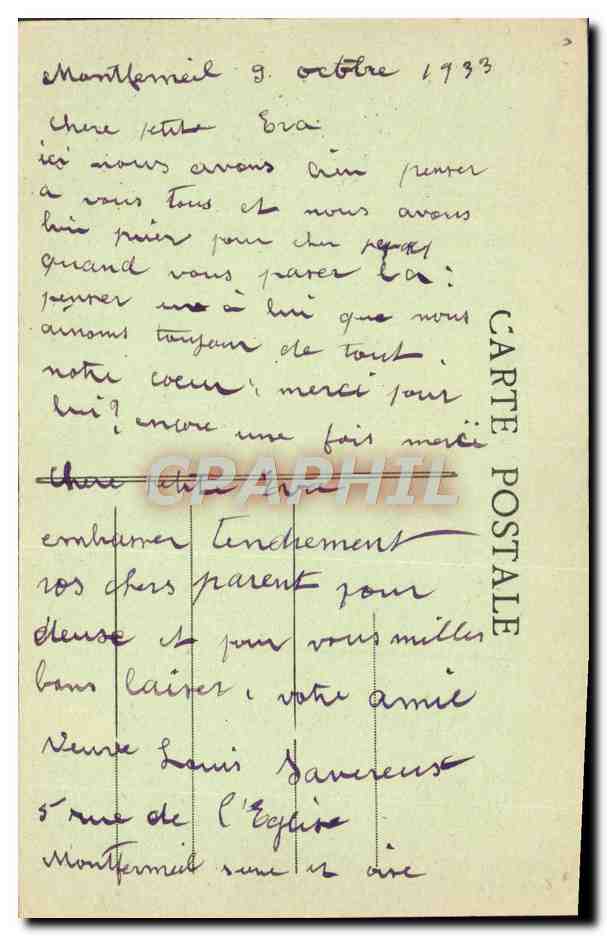 Montfermeil 9 octbre 1933
Chere petite Eva
ici nous avons bien penser
a vous tous et nous avons
bien prier pour cher
quand vous paser la :
penser a lui que nous
aimoms toujour de tout
notre coeur, merci pour
lui ? encore une fois merci
Chere petite Eva
CPAPHIL
embrasser tendrement
vos chers parent pour
deuse et pour vous milles
bons baiser, votre amie
Veuve Louis Davereux
5 rue de l'Eglise
Montfermeil seine et oise
CARTE POSTALE